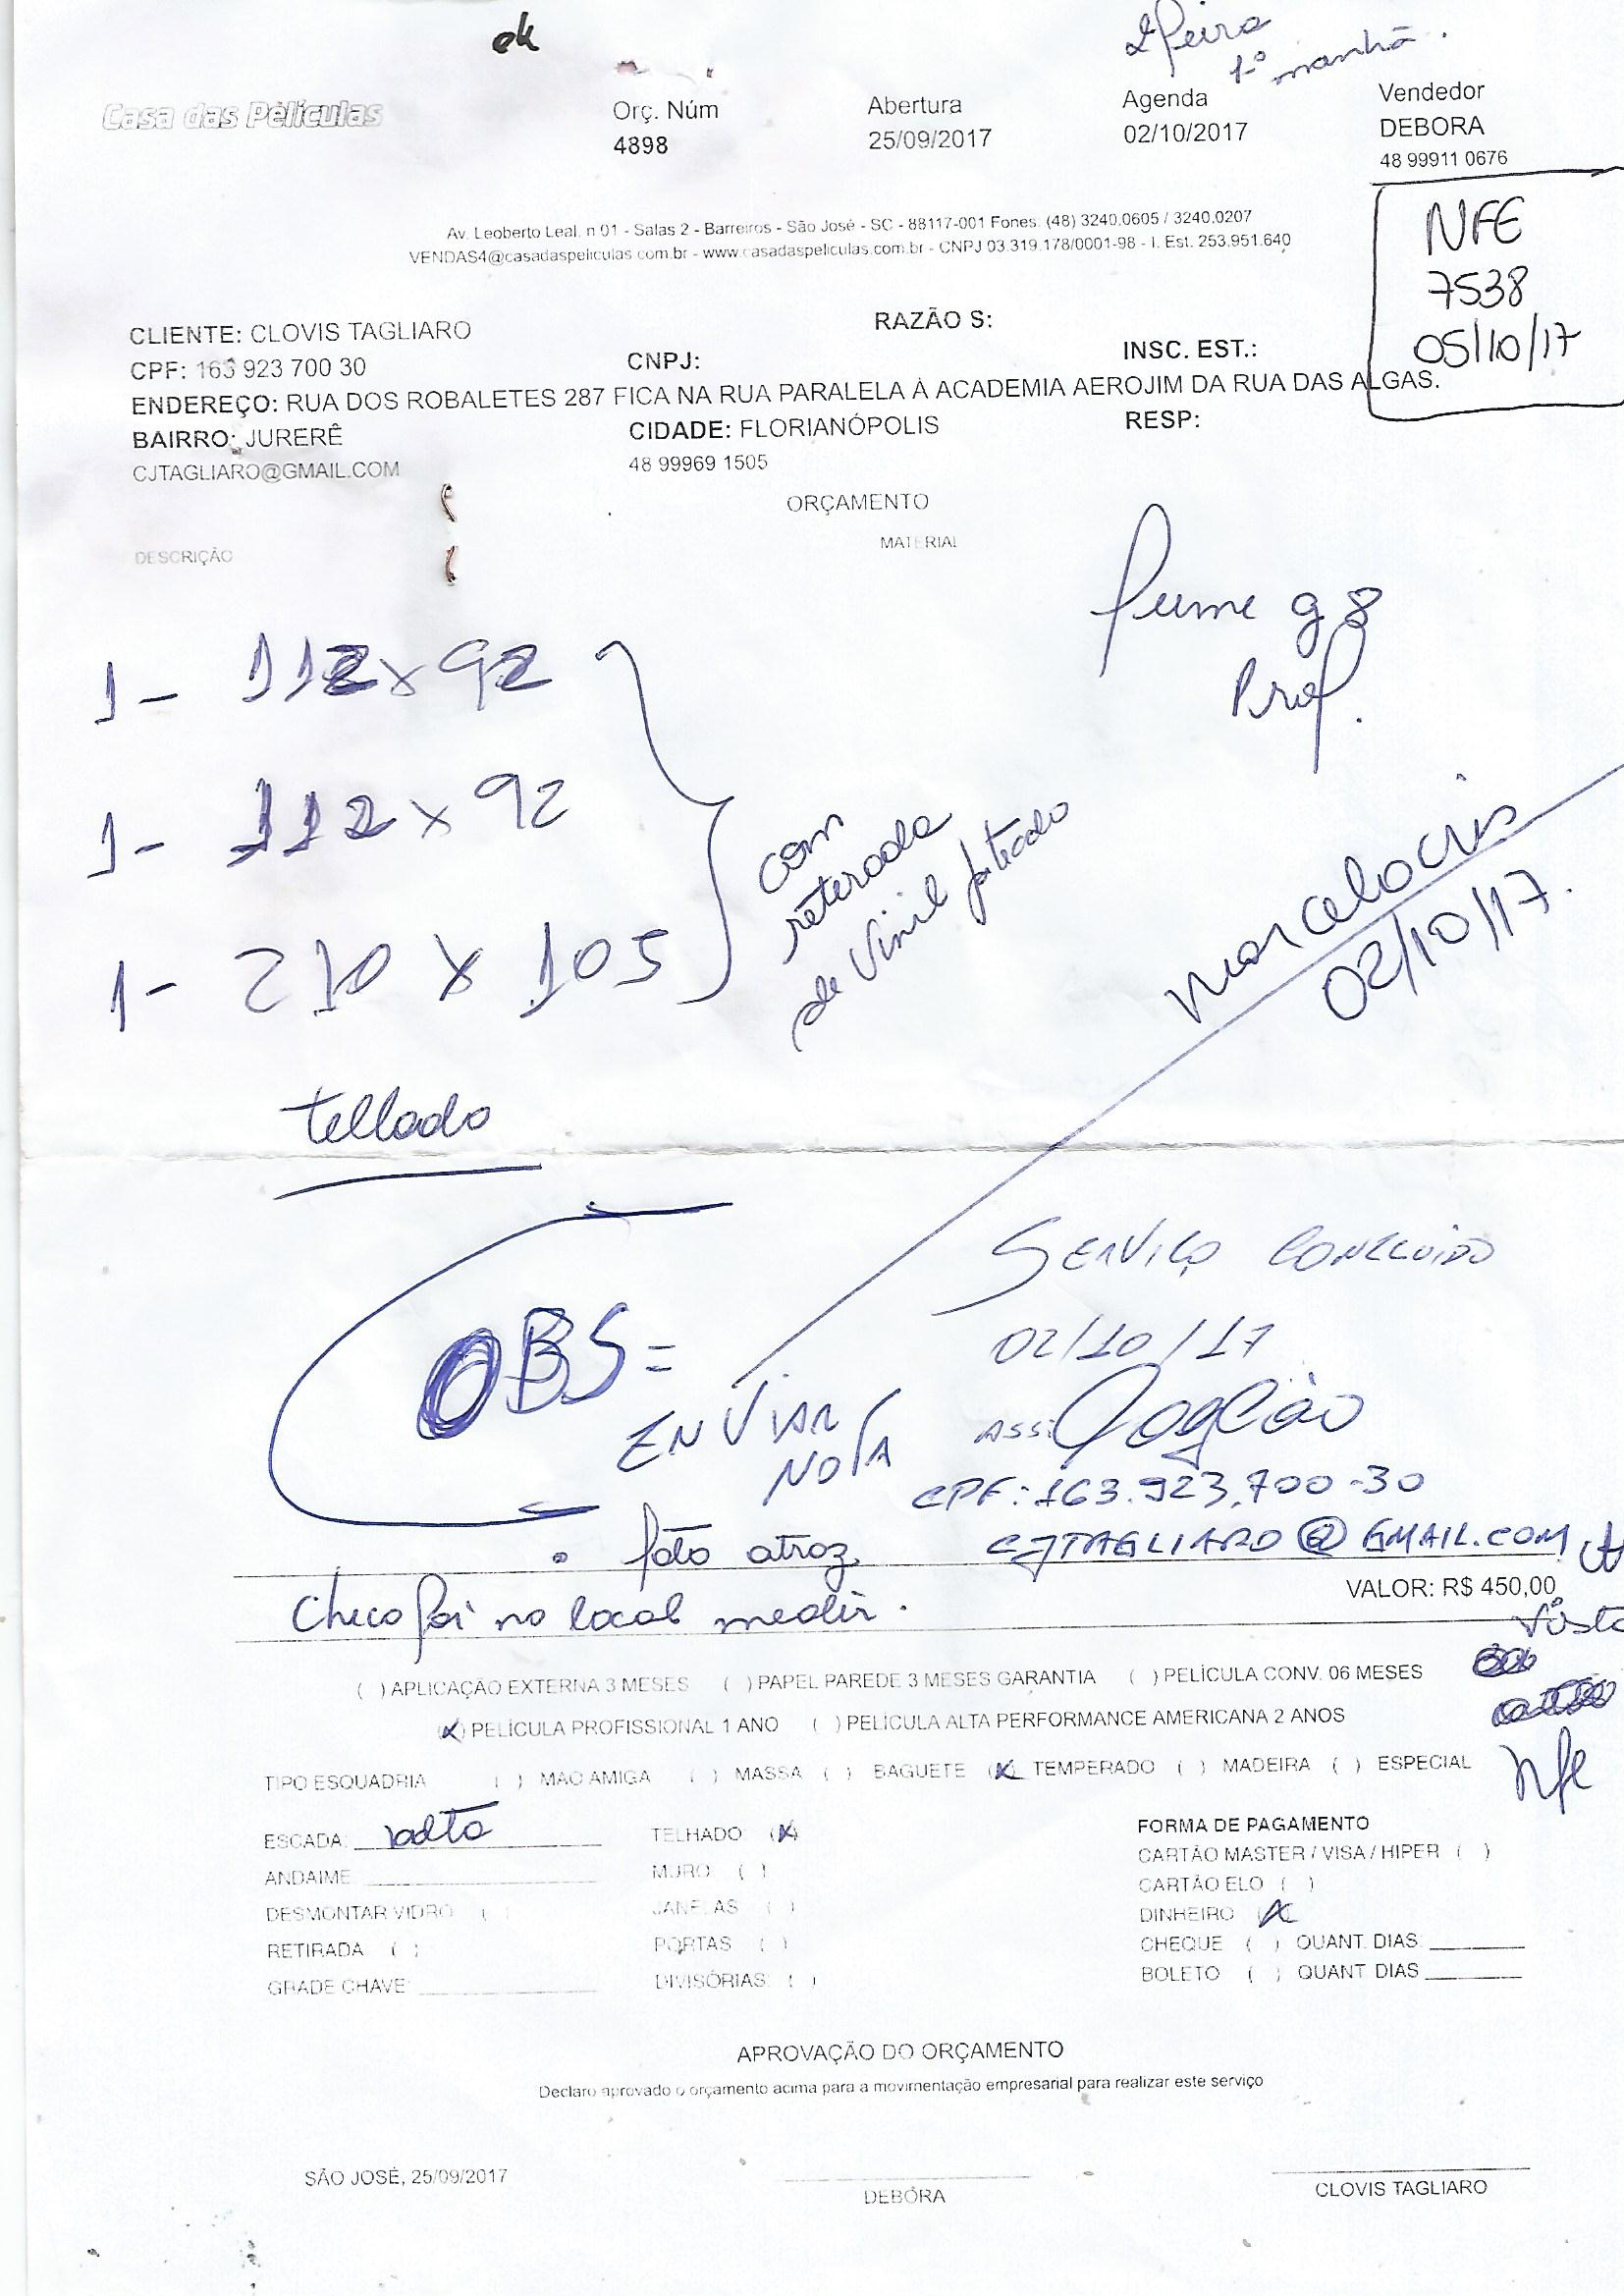 ok
2ª feira
1º manhã.
Casa das Películas
Orç. Núm
4898
Abertura
25/09/2017
Agenda
02/10/2017
Vendedor
DEBORA
48 99911 0676
NFE
7538
05/10/17
Av. Leoberto Leal. n 01 - Salas 2 - Barreiros - São José - SC - 88117-001 Fones: (48) 3240.0605 / 3240.0207
VENDAS4@casadaspeliculas.com.br - www.casadaspeliculas.com.br - CNPJ 03.319.178/0001-98 - I. Est. 253.951.640
CLIENTE: CLOVIS TAGLIARO
RAZÃO S:
CPF: 163 923 700 30
CNPJ:
INSC. EST.:
ENDEREÇO: RUA DOS ROBALETES 287 FICA NA RUA PARALELA À ACADEMIA AEROJIM DA RUA DAS ALGAS.
BAIRRO: JURERÊ
CIDADE: FLORIANÓPOLIS
RESP:
CJTAGLIARO@GMAIL.COM
48 99969 1505
ORÇAMENTO
DESCRIÇÃO
MATERIAL
fume g8
Prof.
1- 112 x 92
1- 112 x 92
1- 210 x 105
com
reterada
de Vinil
02/10/17.
tellado
SERVIÇO CONCLUÍDO
02/10/17
OBS =
ENVIAR
NOTA
ASS:
CPF: 163.923.700-30
CJTAGLIARO@GMAIL.COM
foto atraz
VALOR: R$ 450,00
Chico foi no local medir.
( ) APLICAÇÃO EXTERNA 3 MESES ( ) PAPEL PAREDE 3 MESES GARANTIA ( ) PELÍCULA CONV. 06 MESES
(X) PELÍCULA PROFISSIONAL 1 ANO ( ) PELÍCULA ALTA PERFORMANCE AMERICANA 2 ANOS
TIPO ESQUADRIA ( ) MAO AMIGA ( ) MASSA ( ) BAGUETE (X) TEMPERADO ( ) MADEIRA ( ) ESPECIAL
Nfe
ESCADA: alta
TELHADO (X)
FORMA DE PAGAMENTO
CARTÃO MASTER / VISA / HIPER ( )
ANDAIME
MURO ( )
CARTÃO ELO ( )
DESMONTAR VIDRO ( )
JANELAS ( )
DINHEIRO (X)
RETIRADA ( )
PORTAS ( )
CHEQUE ( ) QUANT. DIAS
GRADE CHAVE
DIVISÓRIAS ( )
BOLETO ( ) QUANT DIAS
APROVAÇÃO DO ORÇAMENTO
Declaro aprovado o orçamento acima para a movimentação empresarial para realizar este serviço
SÃO JOSÉ, 25/09/2017
DEBÓRA
CLOVIS TAGLIARO